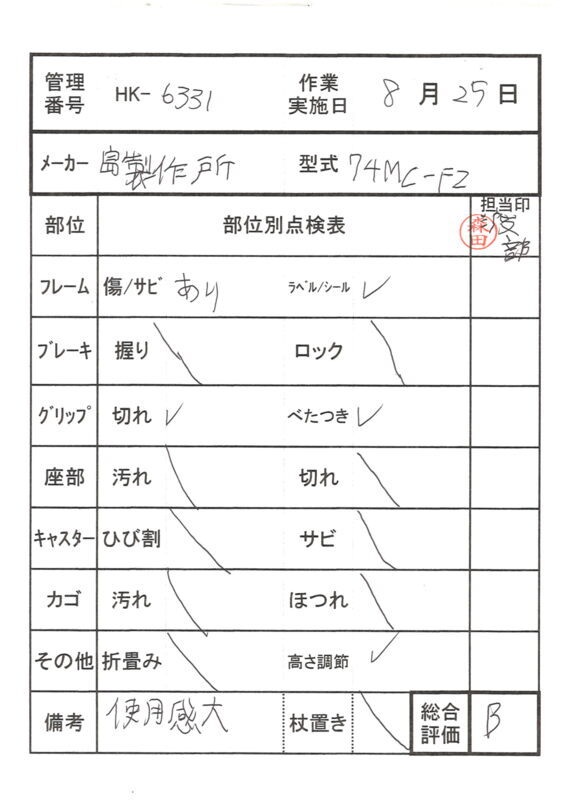 管理番号 HK-6331 作業実施日 8月25日
メーカー 島製作所 型式 74MC-F2
部位 部位別点検表 担当印
森田 渡部
フレーム 傷/サビ あり ラベル/シール ✓
ブレーキ 握り ロック
グリップ 切れ ✓ べたつき ✓
座部 汚れ 切れ
キャスター ひび割 サビ
カゴ 汚れ ほつれ
その他 折畳み 高さ調節 ✓
備考 使用感大 杖置き 総合評価 B